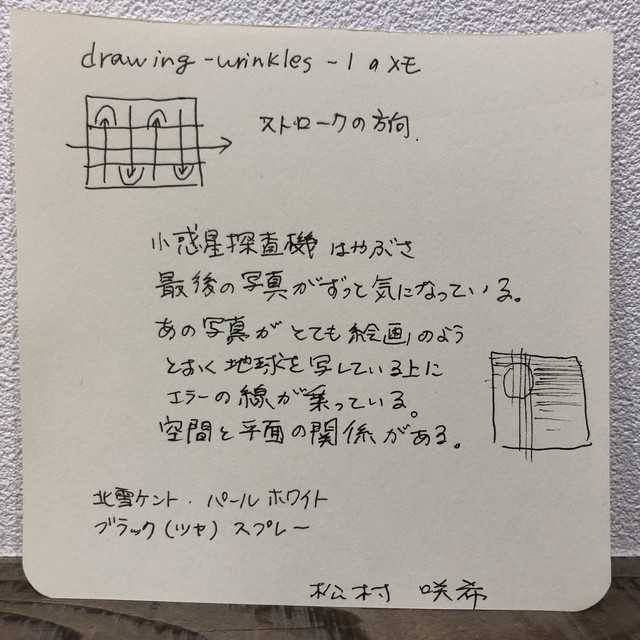 drawing-wrinkles-1のメモ
ストロークの方向.
小惑星探査機はやぶさ
最後の写真がずっと気になっている。
あの写真がとても絵画のよう
とおく地球を写している上に
エラーの線が乗っている。
空間と平面の関係がある。
北雪ケント.パールホワイト
ブラック(ツヤ)スプレー
松村 咲希